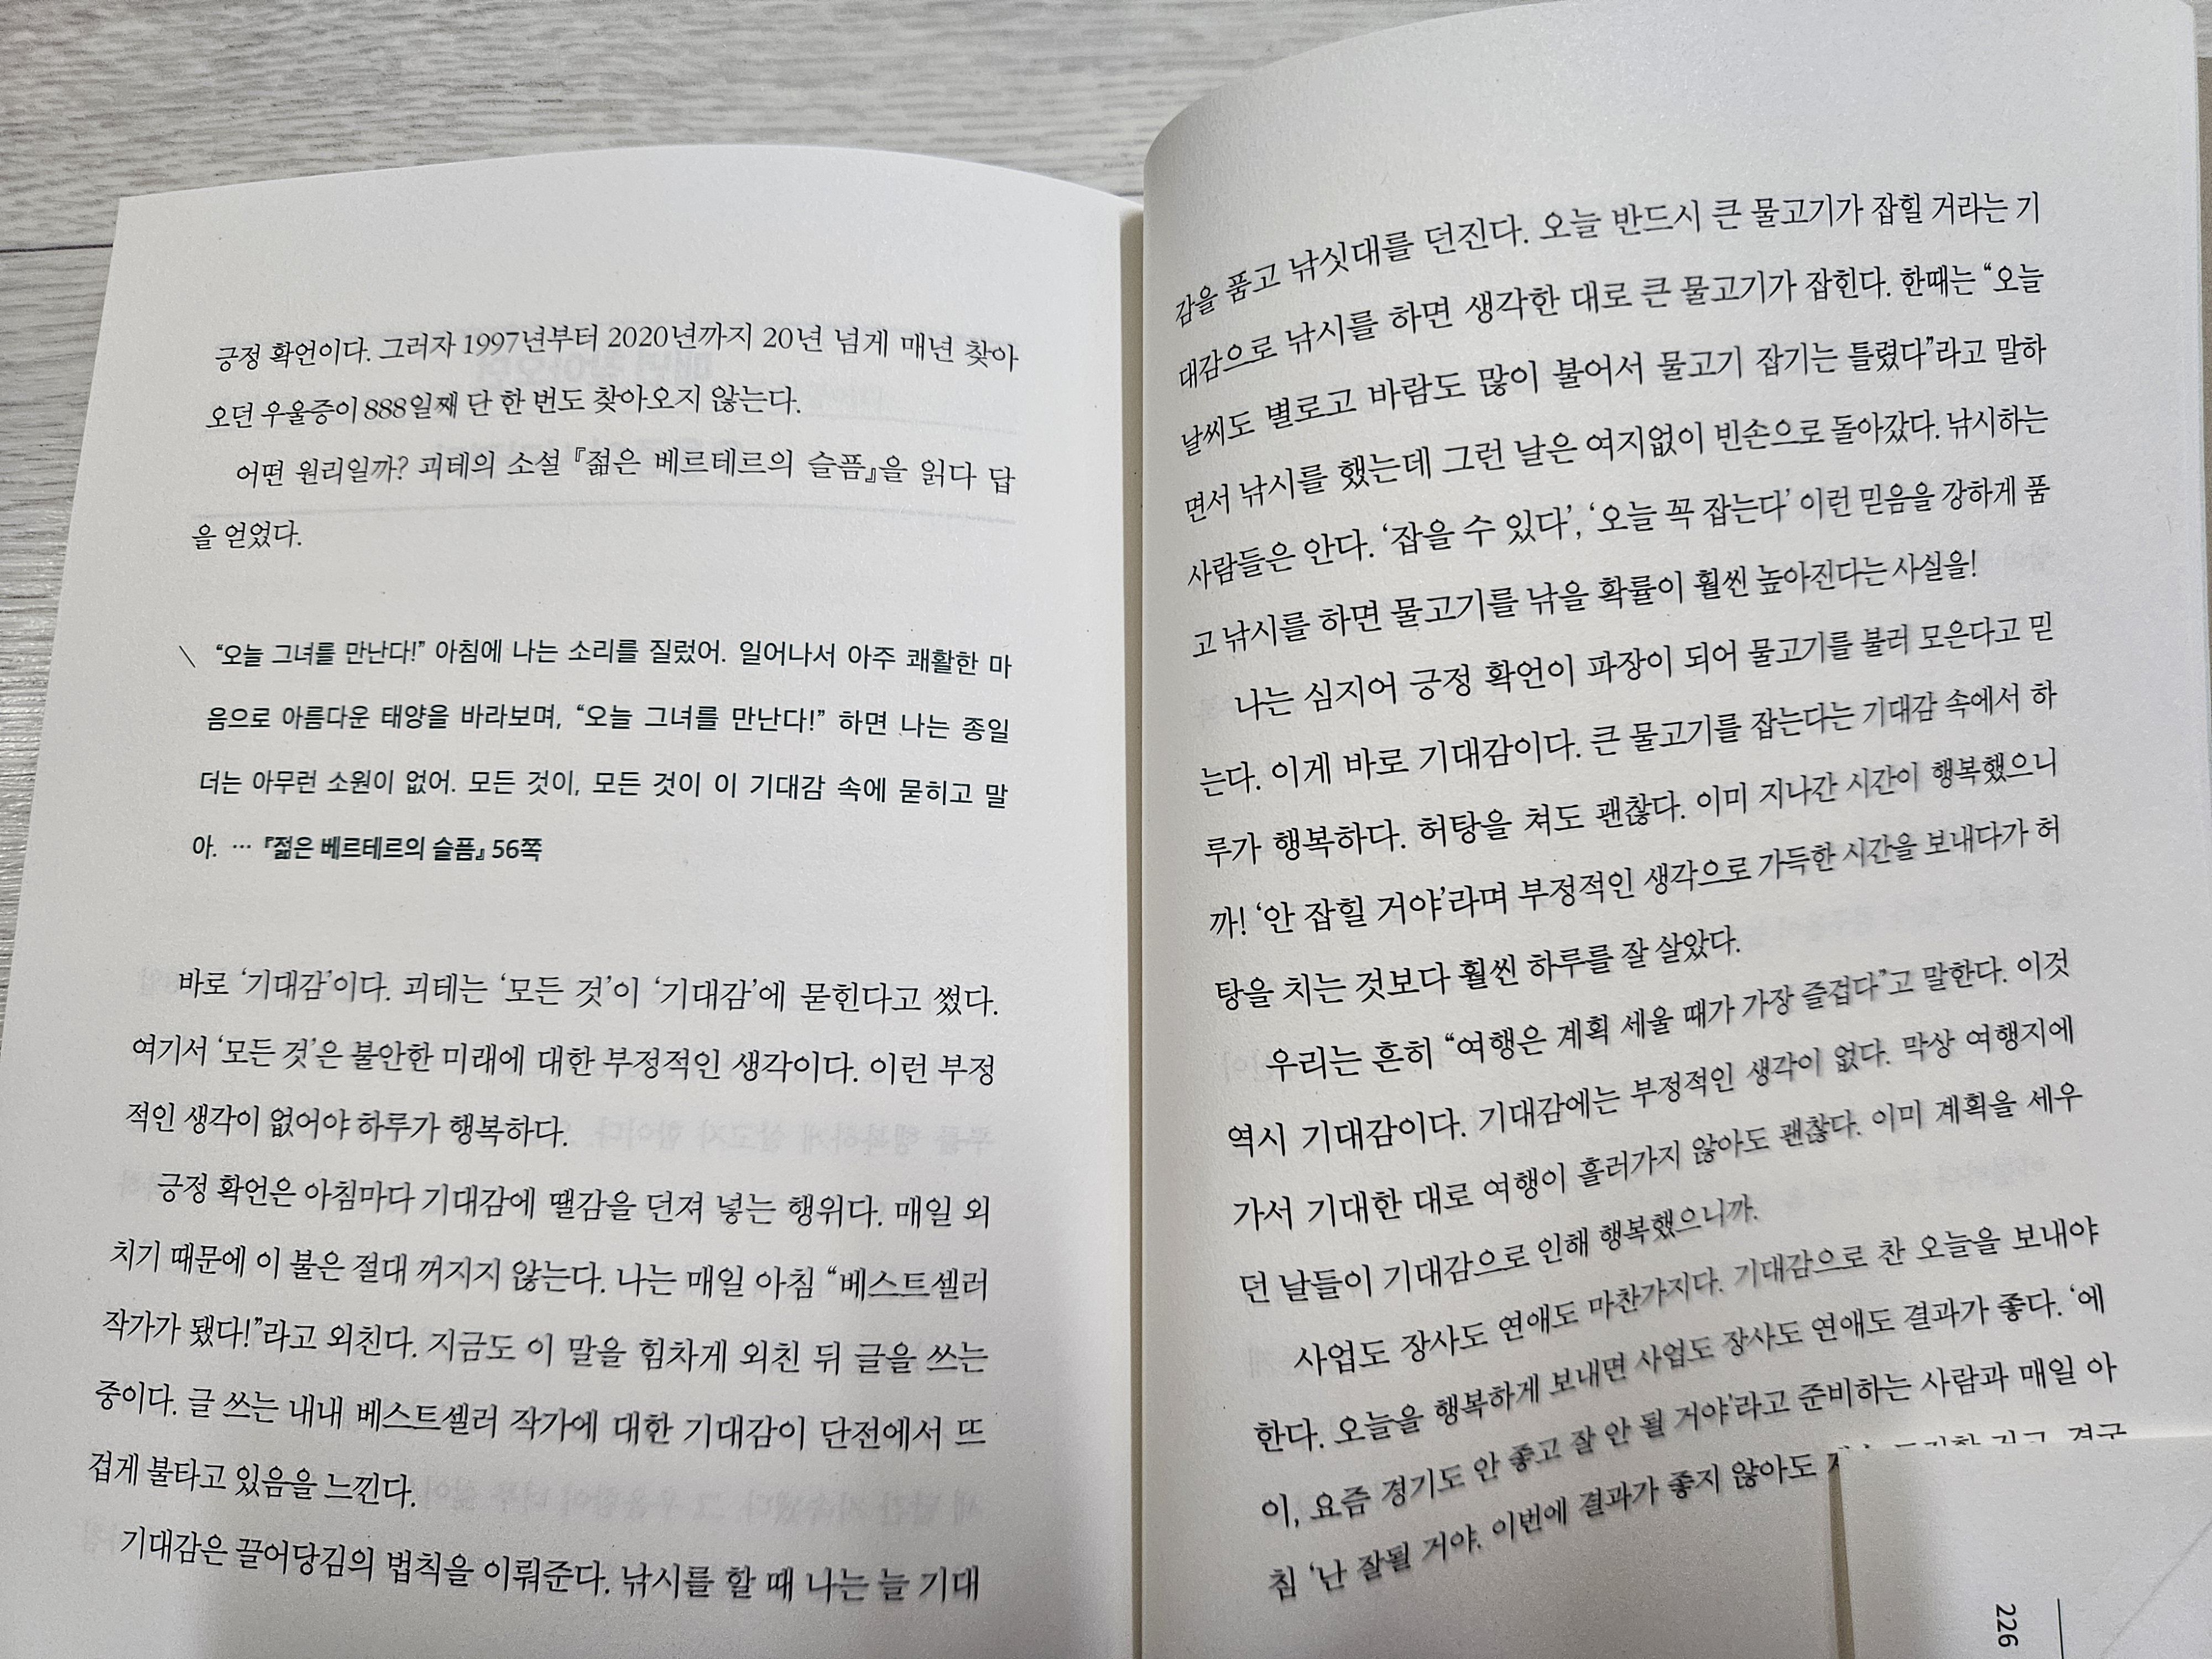 긍정 확언이다. 그러자 1997년부터 2020년까지 20년 넘게 매년 찾아
오던 우울증이 888일째 단 한 번도 찾아오지 않는다.
어떤 원리일까? 괴테의 소설 『젊은 베르테르의 슬픔』을 읽다 답
을 얻었다.
“오늘 그녀를 만난다!” 아침에 나는 소리를 질렀어. 일어나서 아주 쾌활한 마
음으로 아름다운 태양을 바라보며, “오늘 그녀를 만난다!” 하면 나는 종일
더는 아무런 소원이 없어. 모든 것이, 모든 것이 이 기대감 속에 묻히고 말
아. … 『젊은 베르테르의 슬픔』 56쪽
바로 ‘기대감’이다. 괴테는 ‘모든 것’이 ‘기대감’에 묻힌다고 썼다.
여기서 ‘모든 것’은 불안한 미래에 대한 부정적인 생각이다. 이런 부정
적인 생각이 없어야 하루가 행복하다.
긍정 확언은 아침마다 기대감에 땔감을 던져 넣는 행위다. 매일 외
치기 때문에 이 불은 절대 꺼지지 않는다. 나는 매일 아침 “베스트셀러
작가가 됐다!”라고 외친다. 지금도 이 말을 힘차게 외친 뒤 글을 쓰는
중이다. 글 쓰는 내내 베스트셀러 작가에 대한 기대감이 단전에서 뜨
겁게 불타고 있음을 느낀다.
기대감은 끌어당김의 법칙을 이뤄준다. 낚시를 할 때 나는 늘 기대
감을 품고 낚싯대를 던진다. 오늘 반드시 큰 물고기가 잡힐 거라는 기
대감으로 낚시를 하면 생각한 대로 큰 물고기가 잡힌다. 한때는 “오늘
날씨도 별로고 바람도 많이 불어서 물고기 잡기는 틀렸다”라고 말하
면서 낚시를 했는데 그런 날은 여지없이 빈손으로 돌아갔다. 낚시하는
사람들은 안다. ‘잡을 수 있다’, ‘오늘 꼭 잡는다’ 이런 믿음을 강하게 품
고 낚시를 하면 물고기를 낚을 확률이 훨씬 높아진다는 사실을!
나는 심지어 긍정 확언이 파장이 되어 물고기를 불러 모은다고 믿
는다. 이게 바로 기대감이다. 큰 물고기를 잡는다는 기대감 속에서 하
루가 행복하다. 허탕을 쳐도 괜찮다. 이미 지나간 시간이 행복했으니
까! ‘안 잡힐 거야’라며 부정적인 생각으로 가득한 시간을 보내다가 허
탕을 치는 것보다 훨씬 하루를 잘 살았다.
우리는 흔히 “여행은 계획 세울 때가 가장 즐겁다”고 말한다. 이것
역시 기대감이다. 기대감에는 부정적인 생각이 없다. 막상 여행지에
가서 기대한 대로 여행이 흘러가지 않아도 괜찮다. 이미 계획을 세우
던 날들이 기대감으로 인해 행복했으니까.
사업도 장사도 연애도 마찬가지다. 기대감으로 찬 오늘을 보내야
한다. 오늘을 행복하게 보내면 사업도 장사도 연애도 결과가 좋다. ‘에
이, 요즘 경기도 안 좋고 잘 안 될 거야’라고 준비하는 사람과 매일 아
침 ‘난 잘될 거야. 이번에 결과가 좋지 않아도
226